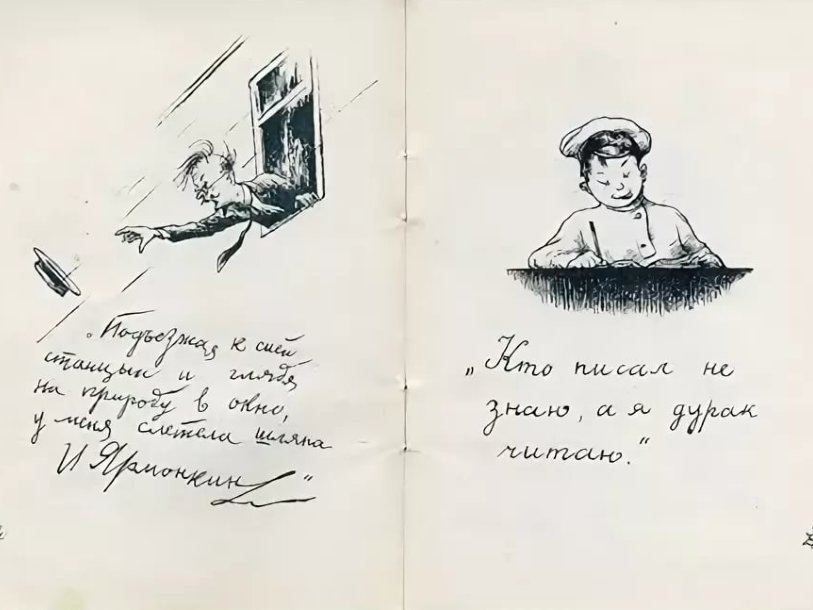 „Подъезжая к сией
станцыи и глядя
на природу в окно,
у меня слетела шляпа
И Ярмонкин"
„Кто писал не
знаю, а я дурак
читаю."